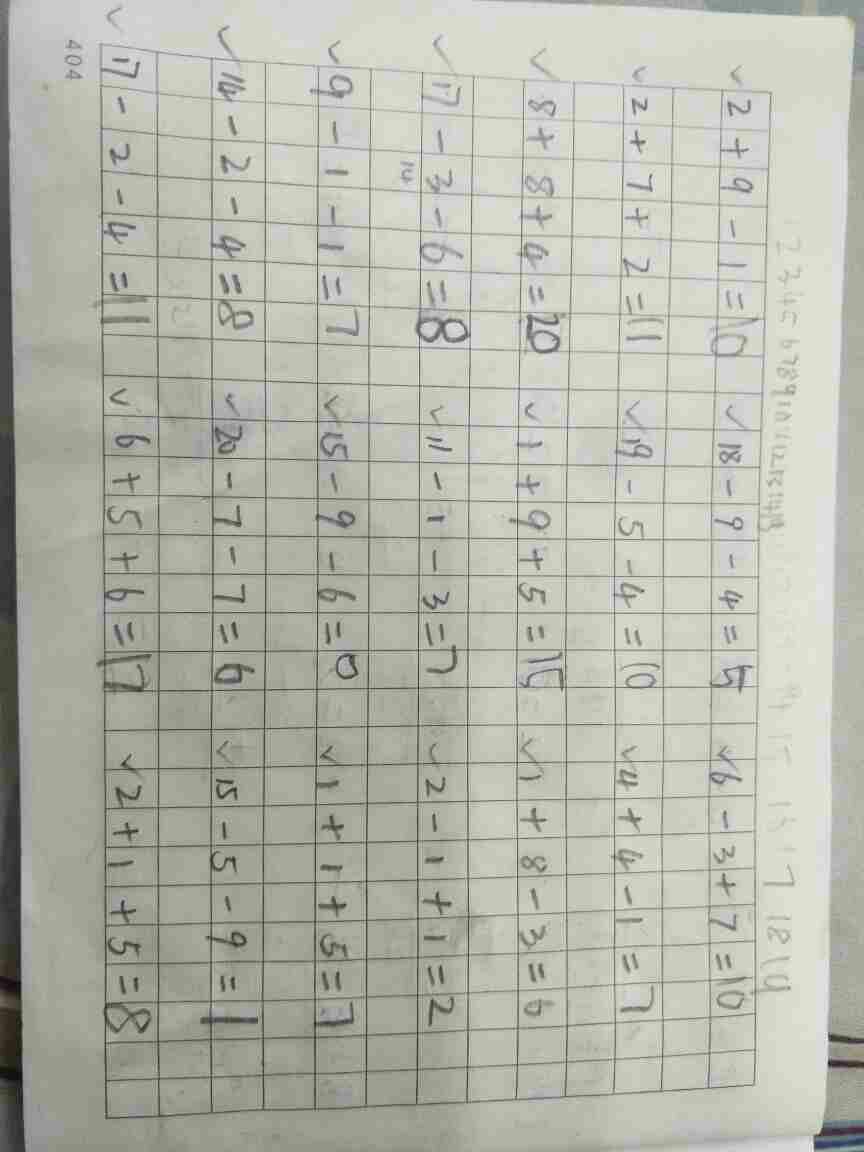 ✓ 2 + 9 - 1 = 10 ✓ 18 - 9 - 4 = 5 ✓ 6 - 3 + 7 = 10
✓ 2 + 7 + 2 = 11 ✓ 19 - 5 - 4 = 10 ✓ 4 + 4 - 1 = 7
✓ 8 + 8 + 4 = 20 ✓ 1 + 9 + 5 = 15 ✓ 1 + 8 - 3 = 6
✓ 17 - 3 - 6 = 8 ✓ 11 - 1 - 3 = 7 ✓ 2 - 1 + 1 = 2
14
✓ 9 - 1 - 1 = 7 ✓ 15 - 9 - 6 = 0 ✓ 1 + 1 + 5 = 7
✓ 14 - 2 - 4 = 8 ✓ 20 - 7 - 7 = 6 ✓ 15 - 5 - 9 = 1
✓ 17 - 2 - 4 = 11 ✓ 6 + 5 + 6 = 17 ✓ 2 + 1 + 5 = 8
404